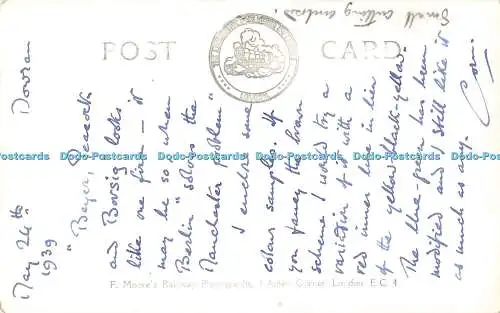 POST CARD
Small cutting enclosed.
May 24th
1939
"Beyer, Peacock
and Borsig looks
like one firm — it
may be so when
Berlin "solves the
Manchester problem"
I enclose some
colour samples. If
you fancy the brown
scheme I would try a
variation of it with a
red inner line in lieu
of the yellow/black-yellow.
The blue-green has been
modified and I still like it
as much as any.
F. Moore's Railway Photographs, London E.C.4
Dodo-Postcards Dodo-Postcards Dodo-Postcards Dodo-Postcards Dodo-Postcards